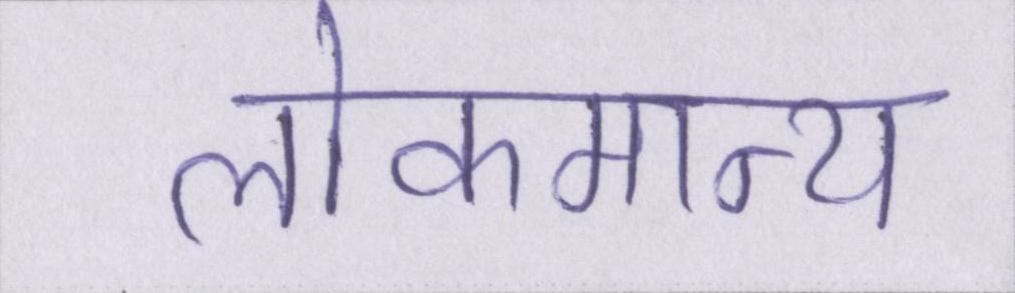 लोकमान्य